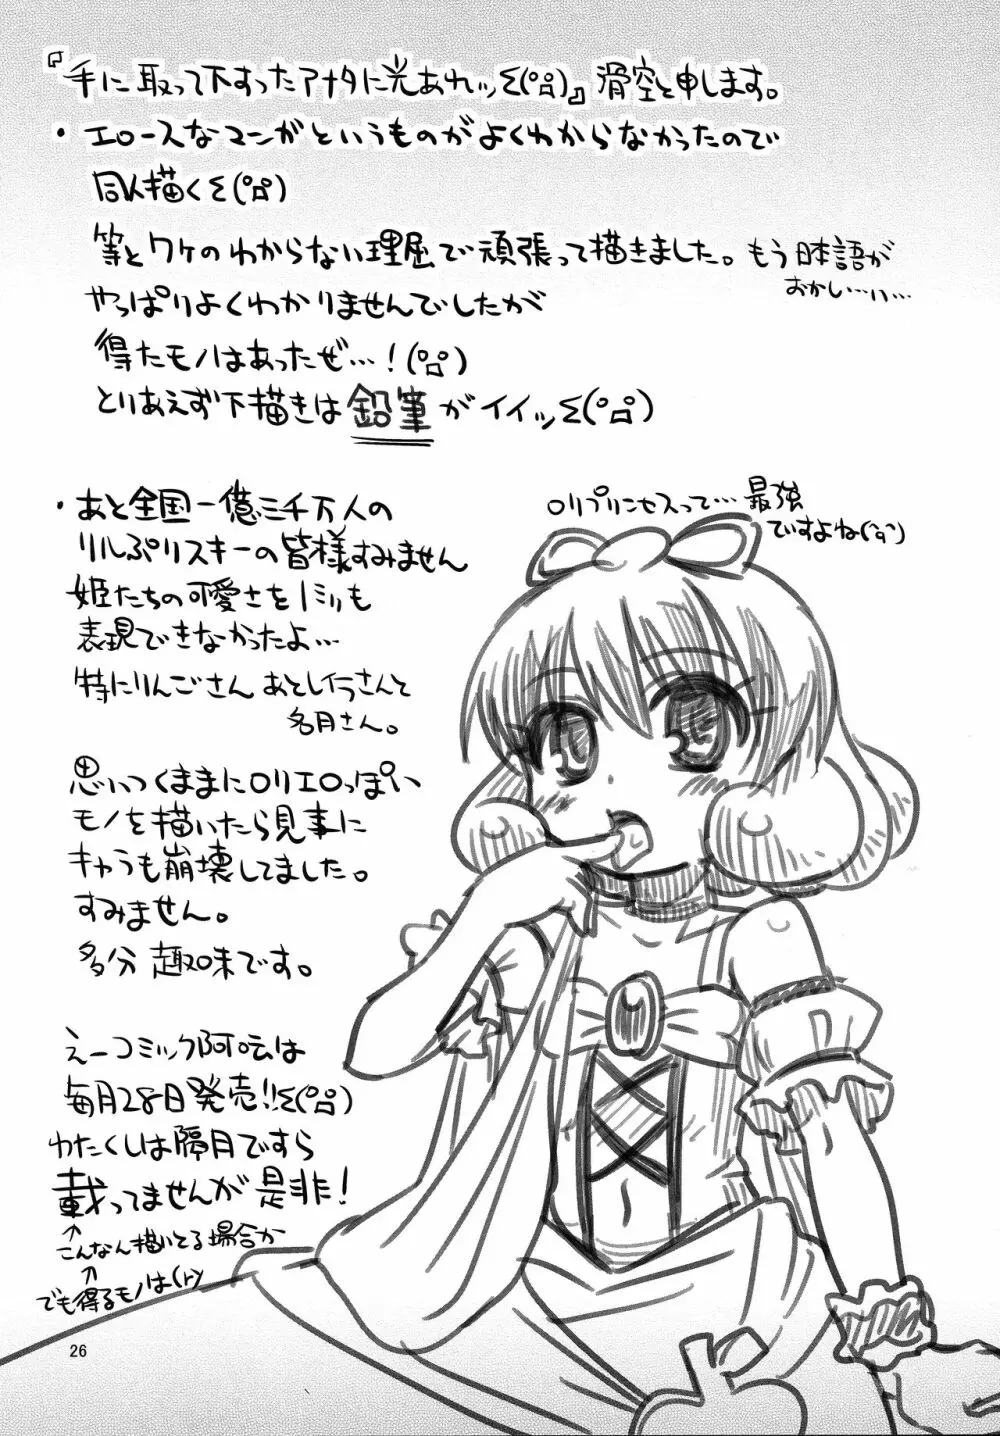 『手に取って下すったアナタに光あれッΣ(°д°)』滑空と申します。
・エロースなマンガというものがよくわからなかったので
同人描くΣ(°д°)
等とワケのわからない理屈で頑張って描きました。もう日本語が
おかしい…ぃ…
やっぱりよくわかりませんでしたが
得たモノはあったぜ…！(°д°)
とりあえず下描きは鉛筆がイイッΣ(°д°)
・あと全国一億三千万人の
リルぷリスキーの皆様すみません
姫たちの可愛さを1ミリも
表現できなかったよ…
特にりんごさん あとレイラさんと
名月さん。
ロリプリンセスって…最強
ですよね
思いつくままにロリエロっぽい
モノを描いたら見事に
キャラも崩壊してました。
すみません。
多分 趣味です。
えーコミック阿吽は
毎月28日発売!!Σ(°д°)
わたくしは隔月ですら
載ってませんが是非！
↑こんなん描いてる場合か
↑でも得るモノは(ry
26